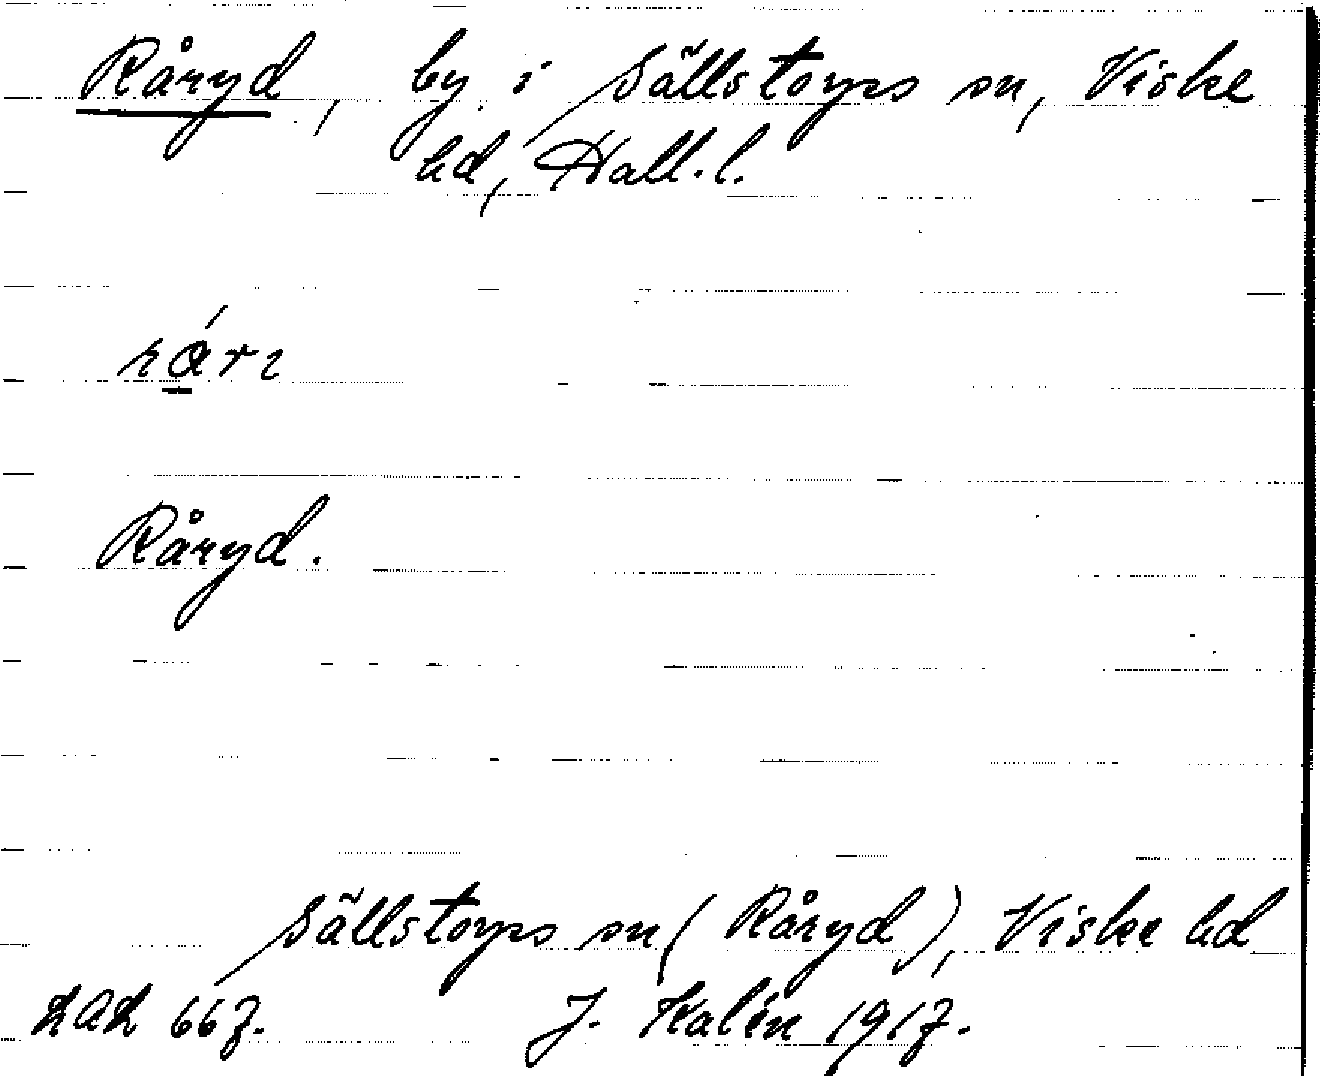 Råryd, by i Sällstorps sn, Viske
hd, Hall. l.
Råryd.
Sällstorps sn (Råryd), Viske hd
667. J. Kalén 1917.